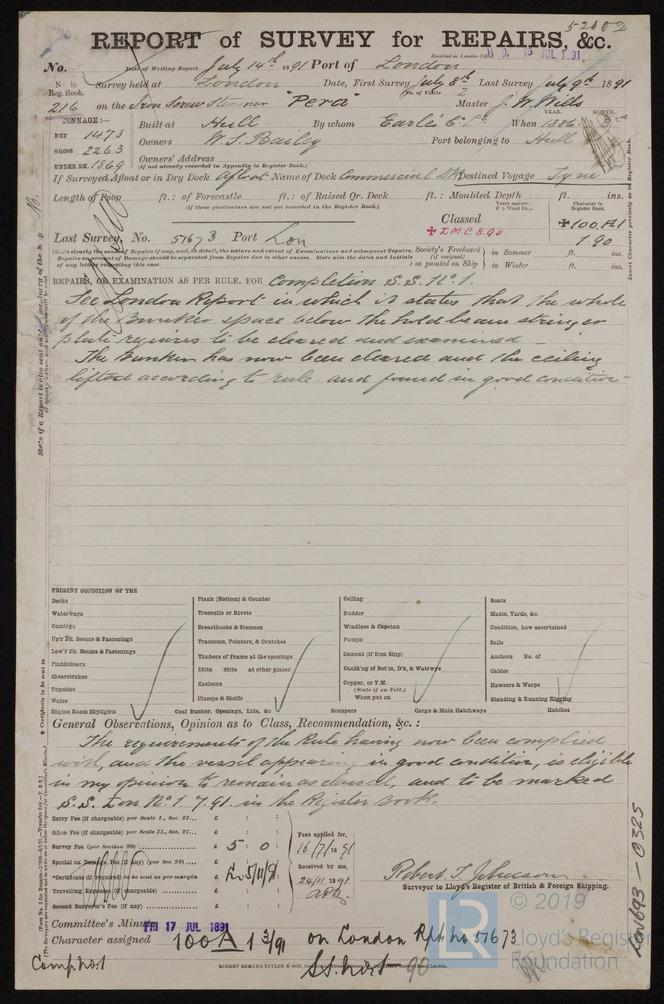 52602
REPORT of SURVEY for REPAIRS, &c.
Received in London Office 15 JUL 91
No. Date of Writing Report July 14th 1891 Port of London
No. in Reg. Book. Survey held at London Date, First Survey July 8th Last Survey July 9th 1891
(No. of Visits 2)
216 on the Iron Screw Steamer "Pera" Master J. W. Wills
TONNAGE:— YEAR. MONTH.
NET 1473 Built at Hull By whom Earle's Co. Ld When 1886.
GROSS 2263 Owners W. S. Bailey Port belonging to Hull
UNDER DK. 1869 Owners' Address
(if not already recorded in Appendix to Register Book.)
If Surveyed Afloat or in Dry Dock Afloat Name of Dock Commercial Dk Destined Voyage Tyne
(if these particulars are not yet recorded in the Register Book.)
Length of Poop ft.: of Forecastle ft.: of Raised Qr. Deck ft.: Moulded Depth ft. ins.
Classed
Character in Register Book.
100.A.1
1.90
L.M.C. 8.90
Last Survey, No. 51673 Port Lon
Society's Freeboard (if assigned) as painted on Ship
in Summer ft. ins.
in Winter ft. ins.
REPAIRS, OR EXAMINATION AS PER RULE, FOR Completion S.S. No. 1.
See London Report in which it states that the whole
of the Bunker space below the hold beam stringer
plate requires to be cleared and examined —
The Bunker has now been cleared and the ceiling
lifted according to rule and found in good condition
PRESENT CONDITION OF THE
Decks
Waterways
Comings
Up'r Dk. Beams & Fastenings
Low'r Dk. Beams & Fastenings
Planksheers
Sheerstrakes
Topsides
Wales
Engine Room Skylights
Plank (Bottom) & Counter
Treenails or Rivets
Breasthooks & Stemson
Transoms, Pointers, & Crutches
Timbers of Frame at the openings
Ditto ditto at other places
Keelsons
Clamps & Shelfs
Coal Bunker, Openings, Lids, &c
Ceiling
Rudder
Windlass & Capstan
Pumps
Cement (if Iron Ship)
Caulk'g of Bot'm, D'k, & Watrwys
Copper, or Y.M.
(State if on Felt.)
When put on
Scuppers
Cargo & Main Hatchways
Boats
Masts, Yards, &c.
Condition, how ascertained
Sails
Anchors No. of
Cables
Hawsers & Warps
Standing & Running Rigging
Hatches
General Observations, Opinion as to Class, Recommendation, &c. :
The requirements of the Rule having now been complied
with, and the vessel appearing in good condition, is eligible
in my opinion to remain as classed, and to be marked
S.S. Lon No. 1. 7.91. in the Register Book.
Entry Fee (if chargeable) per Scale I., Sec. 27... £ : :
Office Fee (if chargeable) per Scale II., Sec. 27... £ : :
Survey Fee (per Section 28) £ 5 : 0 :
Special on Damage Fee (if any) (per Sec. 28) £
*Certificate (if required) to be sent as per margin £
Travelling Expenses (if chargeable) £ : :
Second Surveyor's Fee (if any) £ : :
Fees applied for,
16/7/1891
Received by me,
24/11 1891
Robert T. Johnson
Surveyor to Lloyd's Register of British & Foreign Shipping.
Committee's Minute FRI 17 JUL 1891
Character assigned 100A1 3/91 on London Rpt no 51673
S.S. No 1 90
Comp No 1
Lon693-0325
LR
© 2019
Lloyd's Register
Foundation